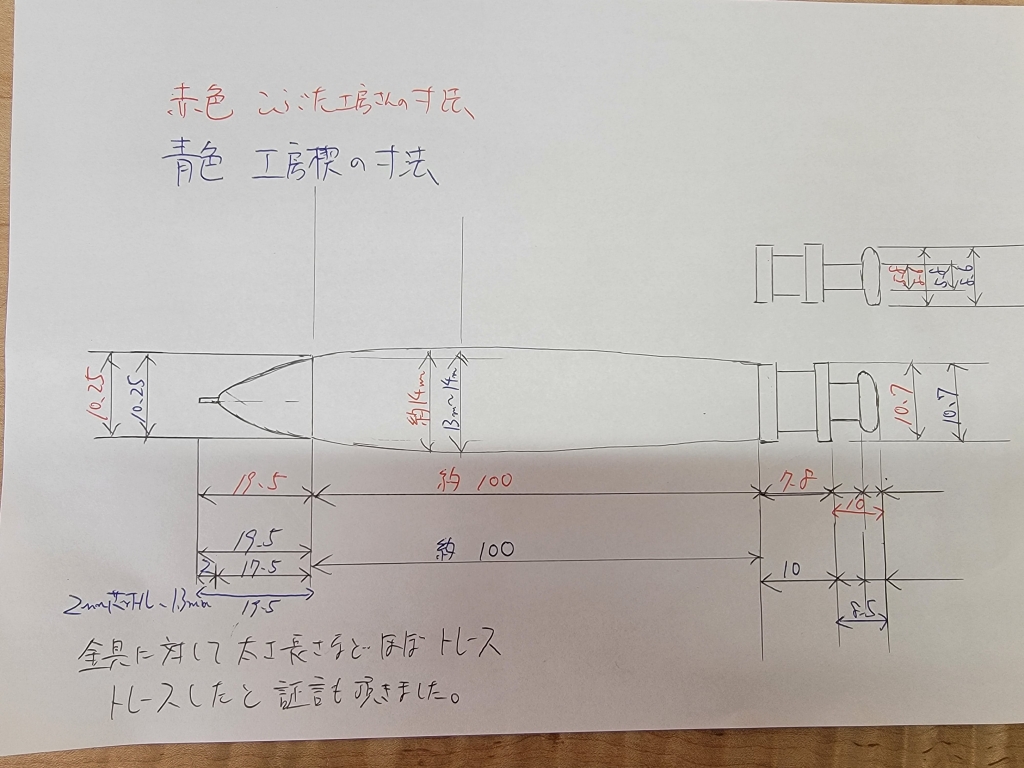 赤色 こぶた工房さんの寸法
青色 工房楔の寸法
10.25
10.25
約14m
13m~14m
10.7
10.7
19.5
約 100
7.8
10
19.5
約 100
2
17.5
10
8.5
19.5
金具に対して太さ長さなどほぼトレース
トレースしたと証言も頂きました。